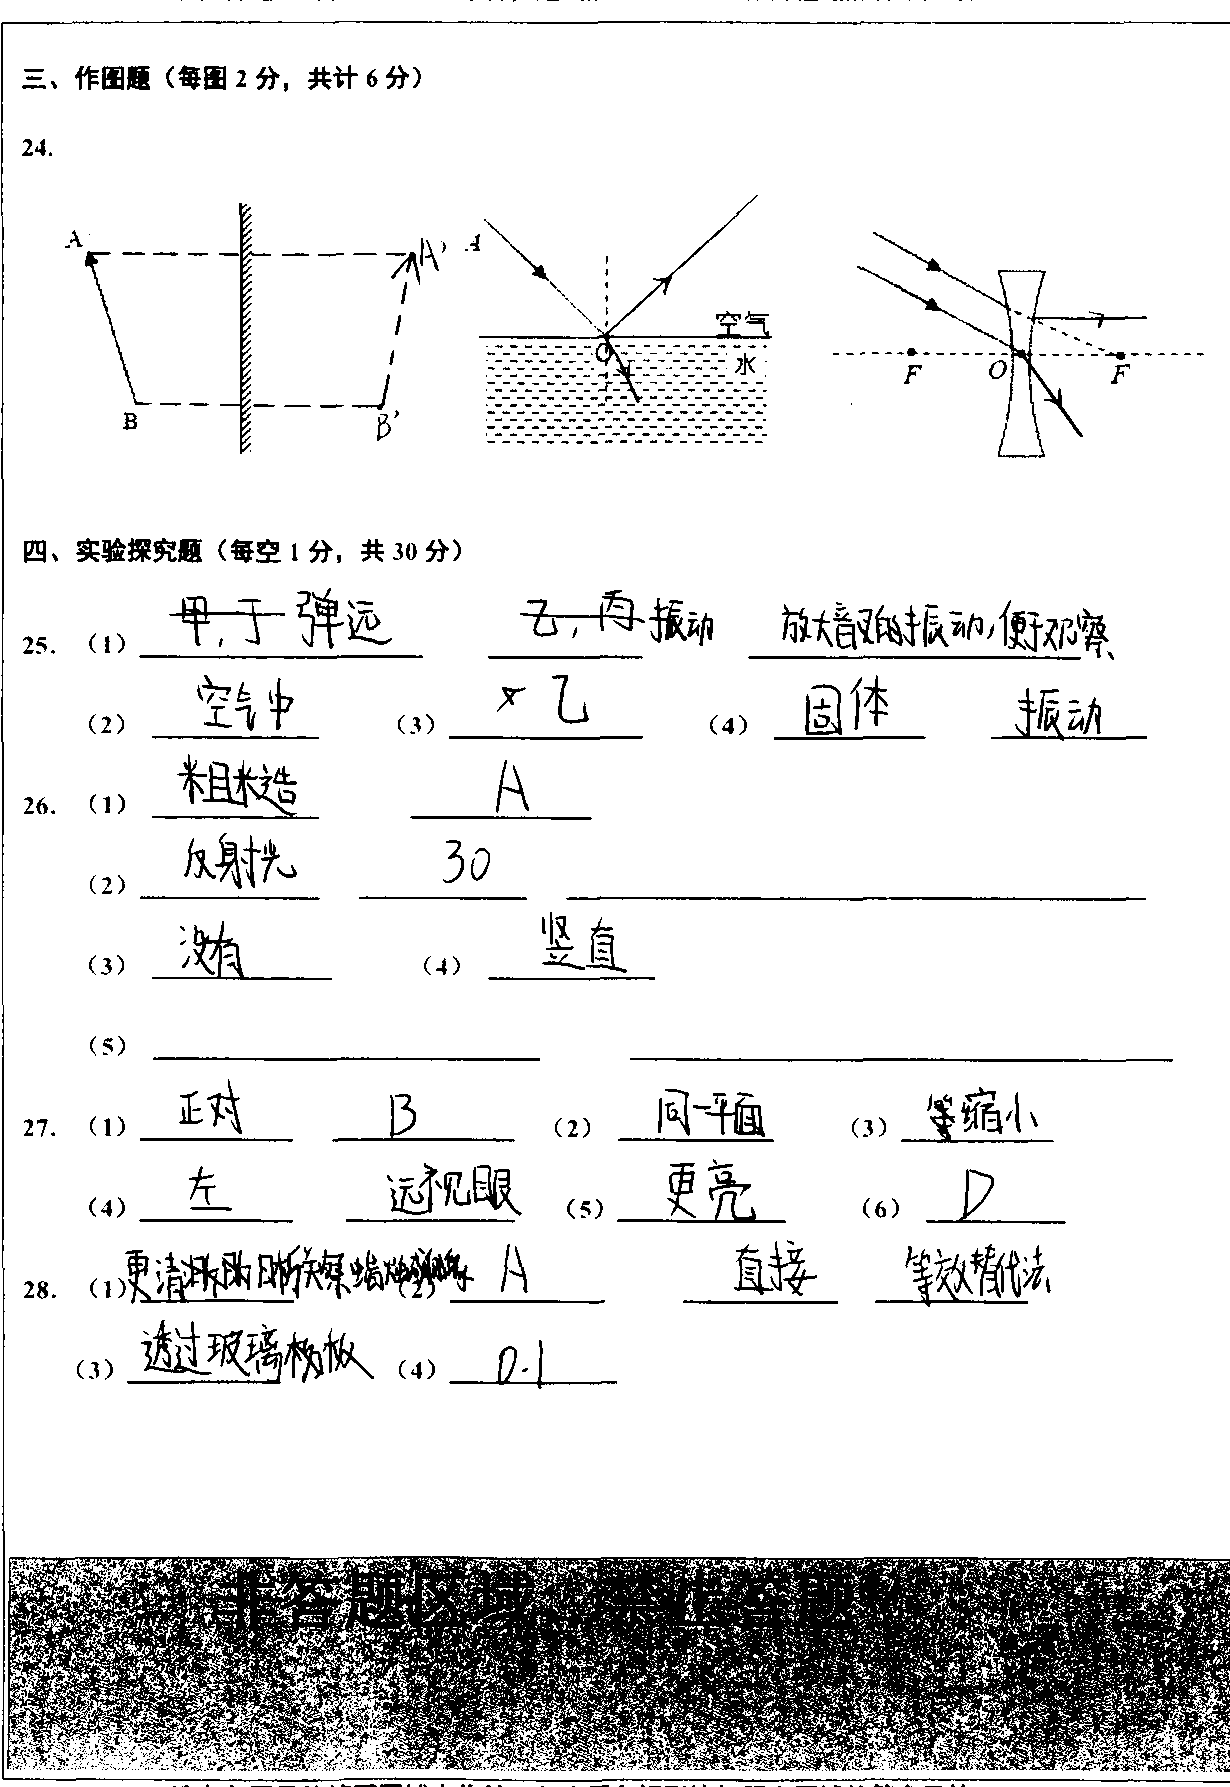 三、作图题（每图 2 分，共计 6 分）
24.
A A' A
空气
O 水
F O F
B B'
四、实验探究题（每空 1 分，共 30 分）
25. （1） 甲,丁 弹远 乙,丙 振动 放大音叉的振动,便于观察
（2） 空气中 （3） 乙 （4） 固体 振动
26. （1） 粗糙 A
（2） 反射光 30
（3） 没有 （4） 竖直
（5）
27. （1） 正对 B （2） 同一平面 （3） 缩小
（4） 左 远视眼 （5） 更亮 （6） D
28. （1） 更清 （2） A 直接 等效替代法
（3） 透过玻璃板 （4） 0.1
非答题区域，禁止答题